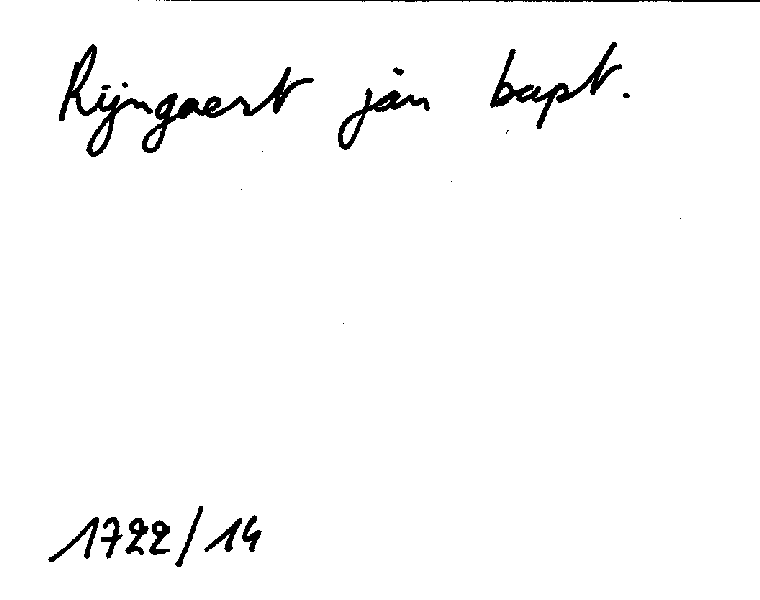 Rijngaert jan bapt.
1722/14